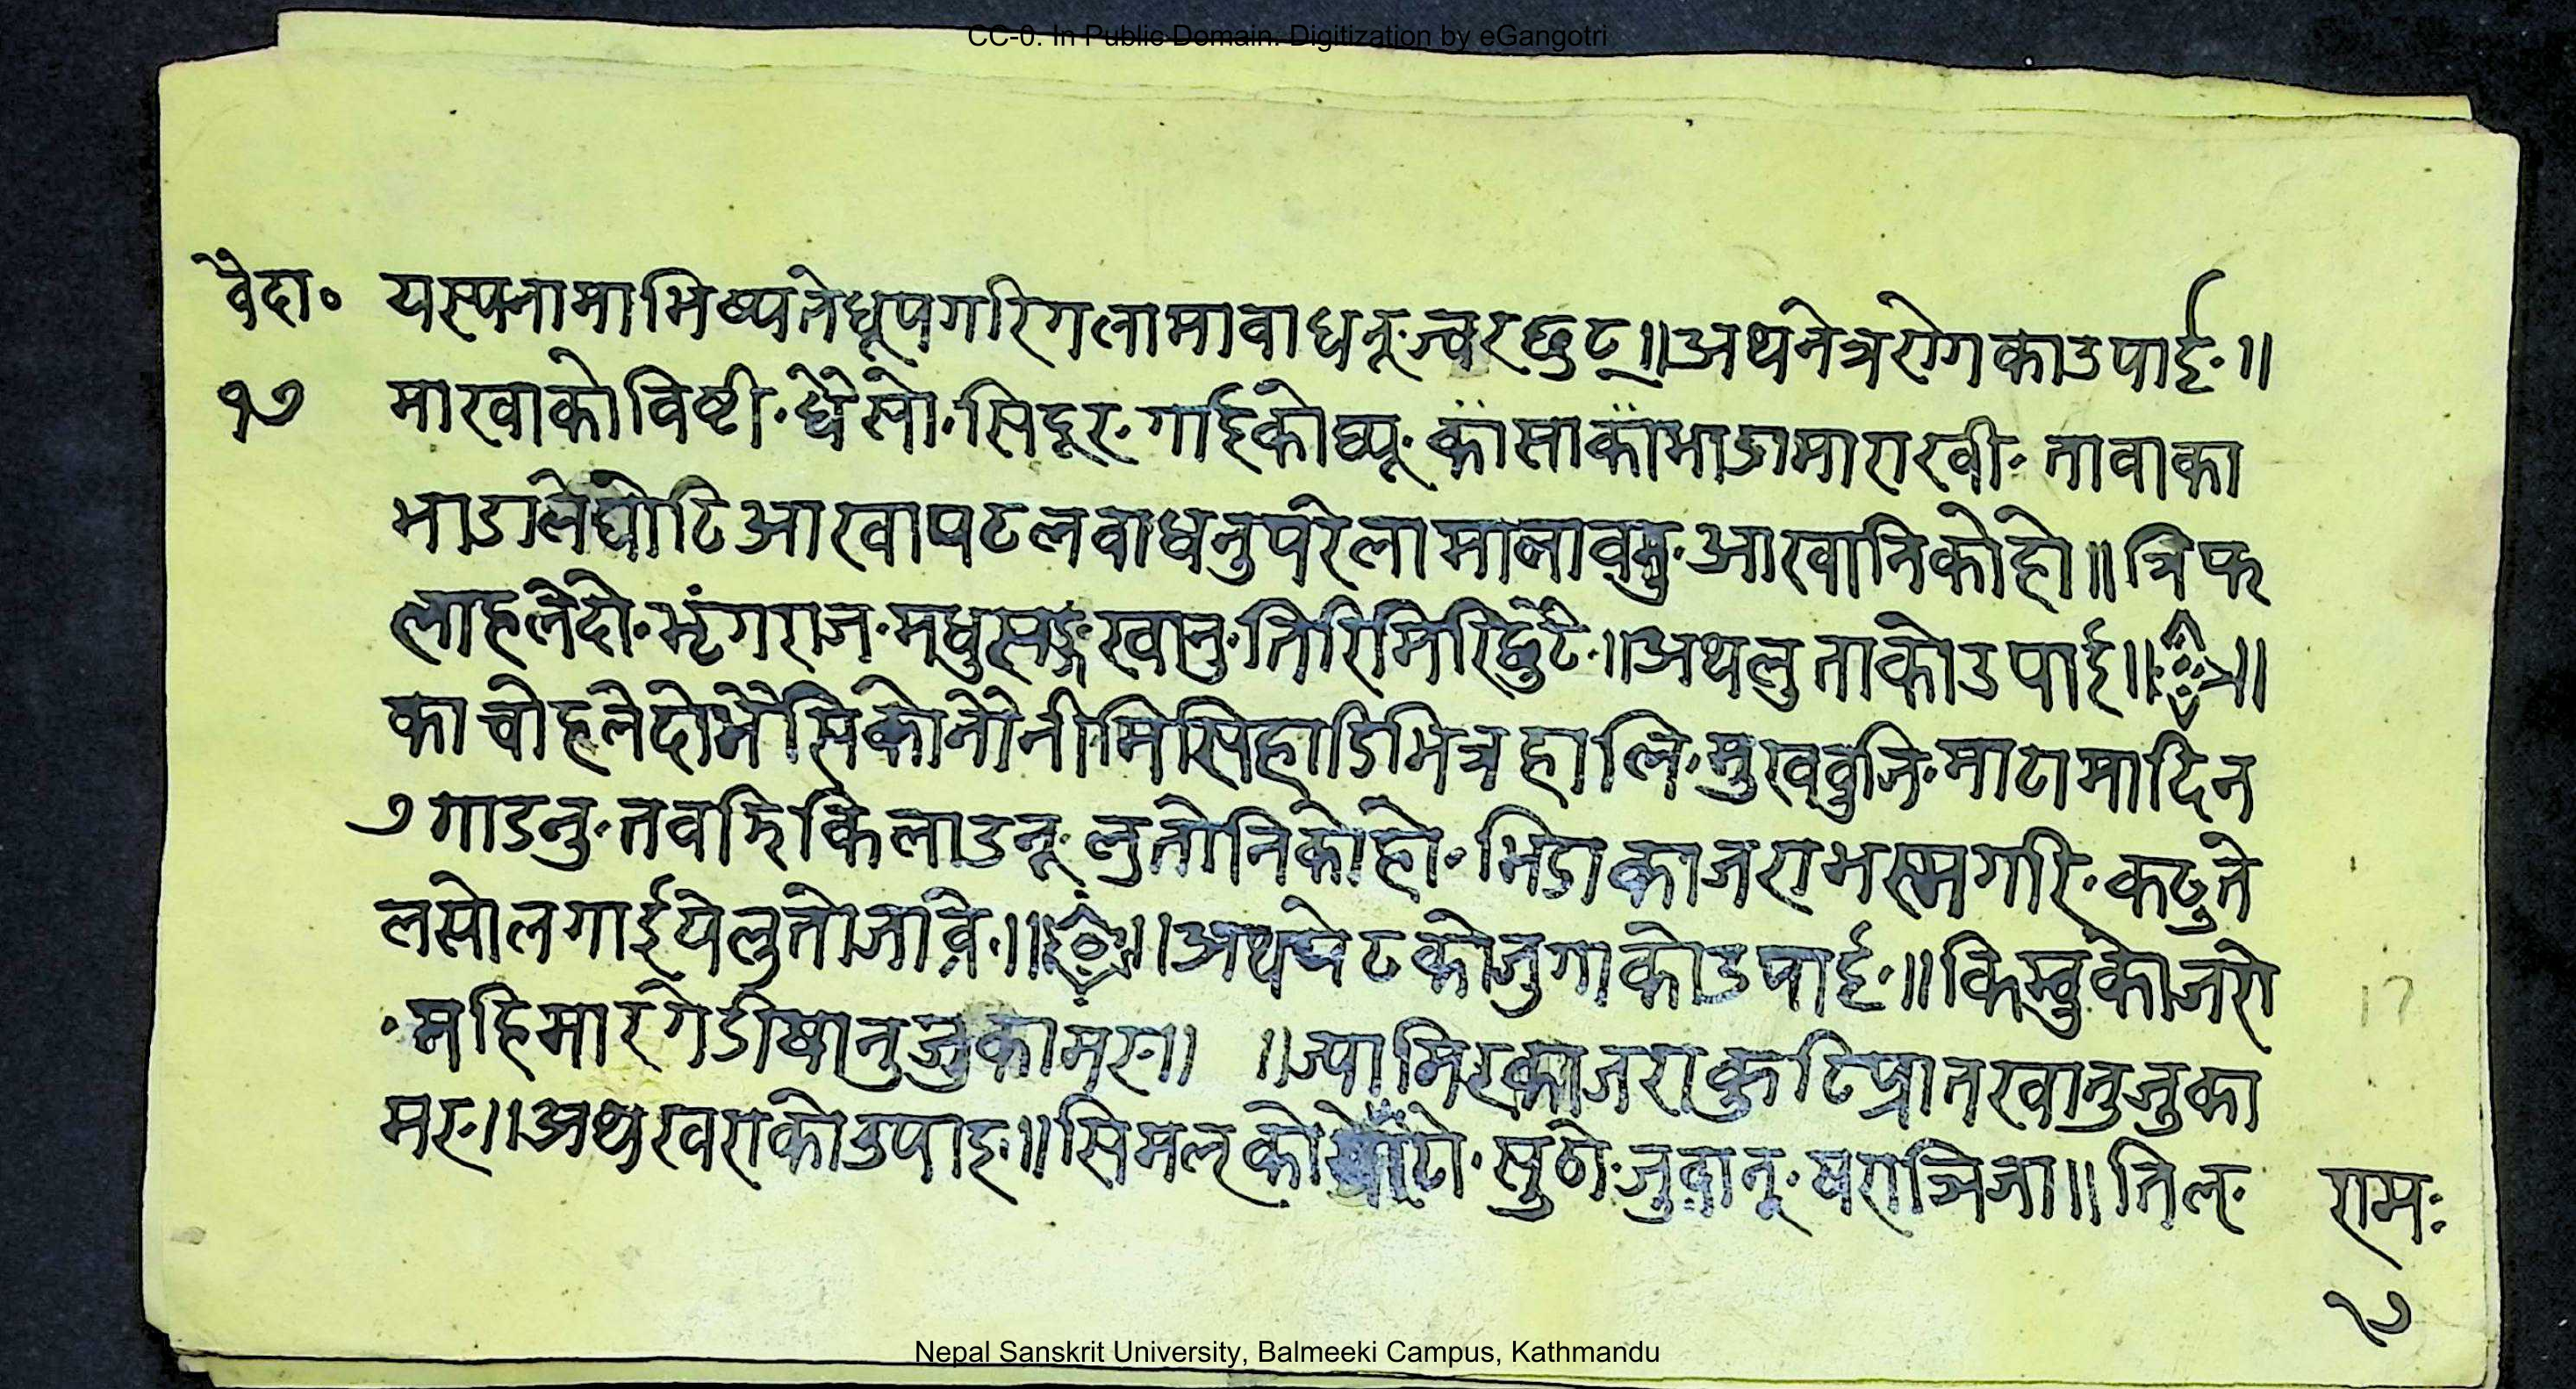 CC-0. In Public Domain. Digitization by eGangotri
वैदा० यस्पनामाभिष्पतेधूपगरिगलामावाधनूज्वरछुट्॥अथनेत्ररोगकाउपाई॥
१७ माखाकोविष्टी·धैसो·सिदूर·गाईकोघ्यू·कासाकाभाडामाराखी·तावाका
भाडालेघोटिआखापटलवाधनुपरेलामालावनु·आखानिकोहो॥त्रिफ
लाहलेदो·भृंगराज·मधुसङ्गखानु·तिरिमिरिछुटै॥अथलुताकोउपाई॥
काचोहलेदोभैसिकोनोनीमिसिहाडिभित्रहालि·मुखवुजि·माटामादिन
७गाडनु·तवझिकिलाउनू·लुतोनिकोहो·भिडाकाजराभस्मगरि·कटुते
लसोलगाईयेलुतोजावे॥ ॥अथपेटकोजुगाकोउपाई॥किम्वुकोजरो
·महिमारगेडीषानुजुकामरु॥ ॥ज्यामिरकाजराकुटिप्रातखानुजुका
मरु॥अथखराकोउपाइ॥सिमलको सुठो·जुवानू·षरात्रिजा॥तिल· रामः
१७
17
Nepal Sanskrit University, Balmeeki Campus, Kathmandu